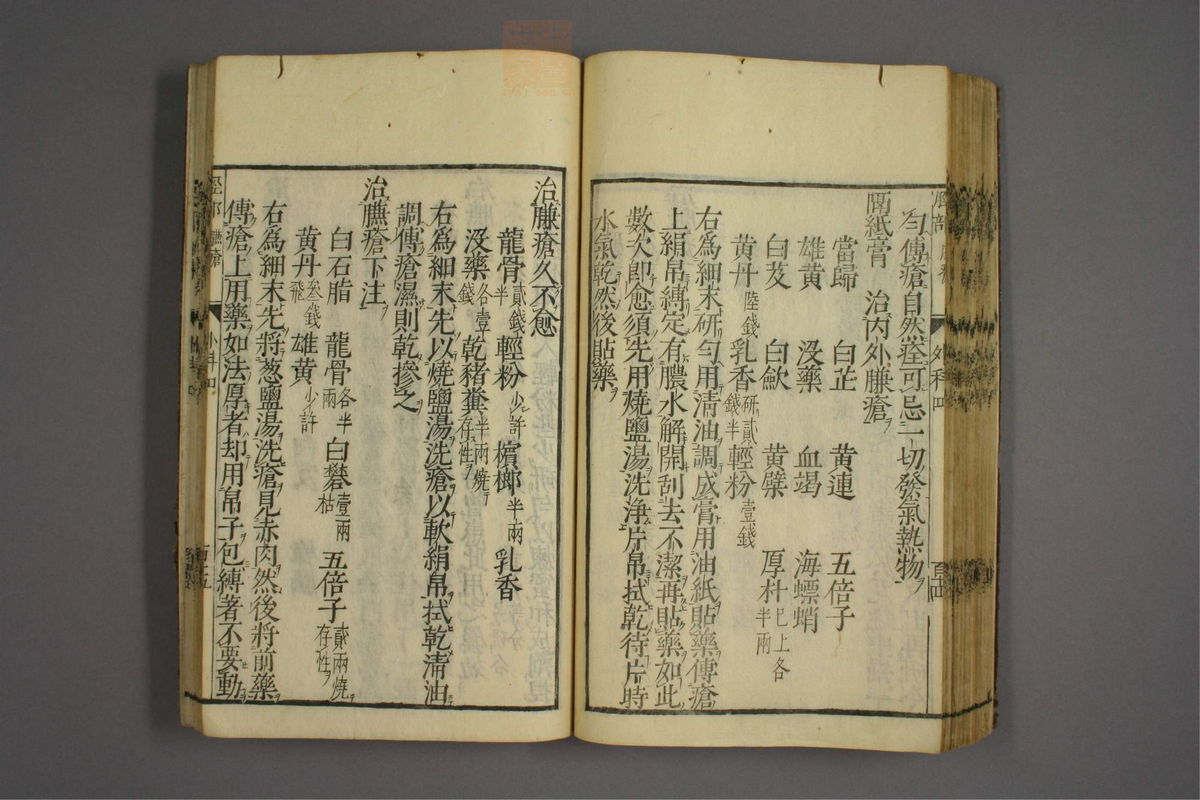 勻傅瘡自然痊可忌一切發氣熱物
隔紙膏　治內外臁瘡
當歸　白芷　黃連　五倍子
雄黃　沒藥　血竭　海螵蛸
白芨　白歛　黃蘗　厚朴巳上各半兩
黃丹陸錢　乳香研貳錢半　輕粉壹錢
右爲細末研勻用清油調成膏用油紙貼藥傅瘡
上絹帛縛定有膿水解開刮去不潔再貼藥如此
數次即愈須先用燒鹽湯洗淨片帛拭乾待片時
水氣乾然後貼藥
外科四
百十四
治臁瘡久不愈
龍骨貳錢半　輕粉少許　檳榔半兩　乳香
沒藥各壹錢　乾豬糞半兩燒存性
右爲細末先以燒鹽湯洗瘡以軟絹帛拭乾清油
調傅瘡濕則乾摻之
治臁瘡下注
白石脂　龍骨各半兩　白礬壹兩枯　五倍子貳兩燒存性
黃丹叁錢飛　雄黃少許
右爲細末先將葱鹽湯洗瘡見赤肉然後將前藥
傅瘡上用藥如法厚者却用帛子包縛著不要動
臁瘡
百十五